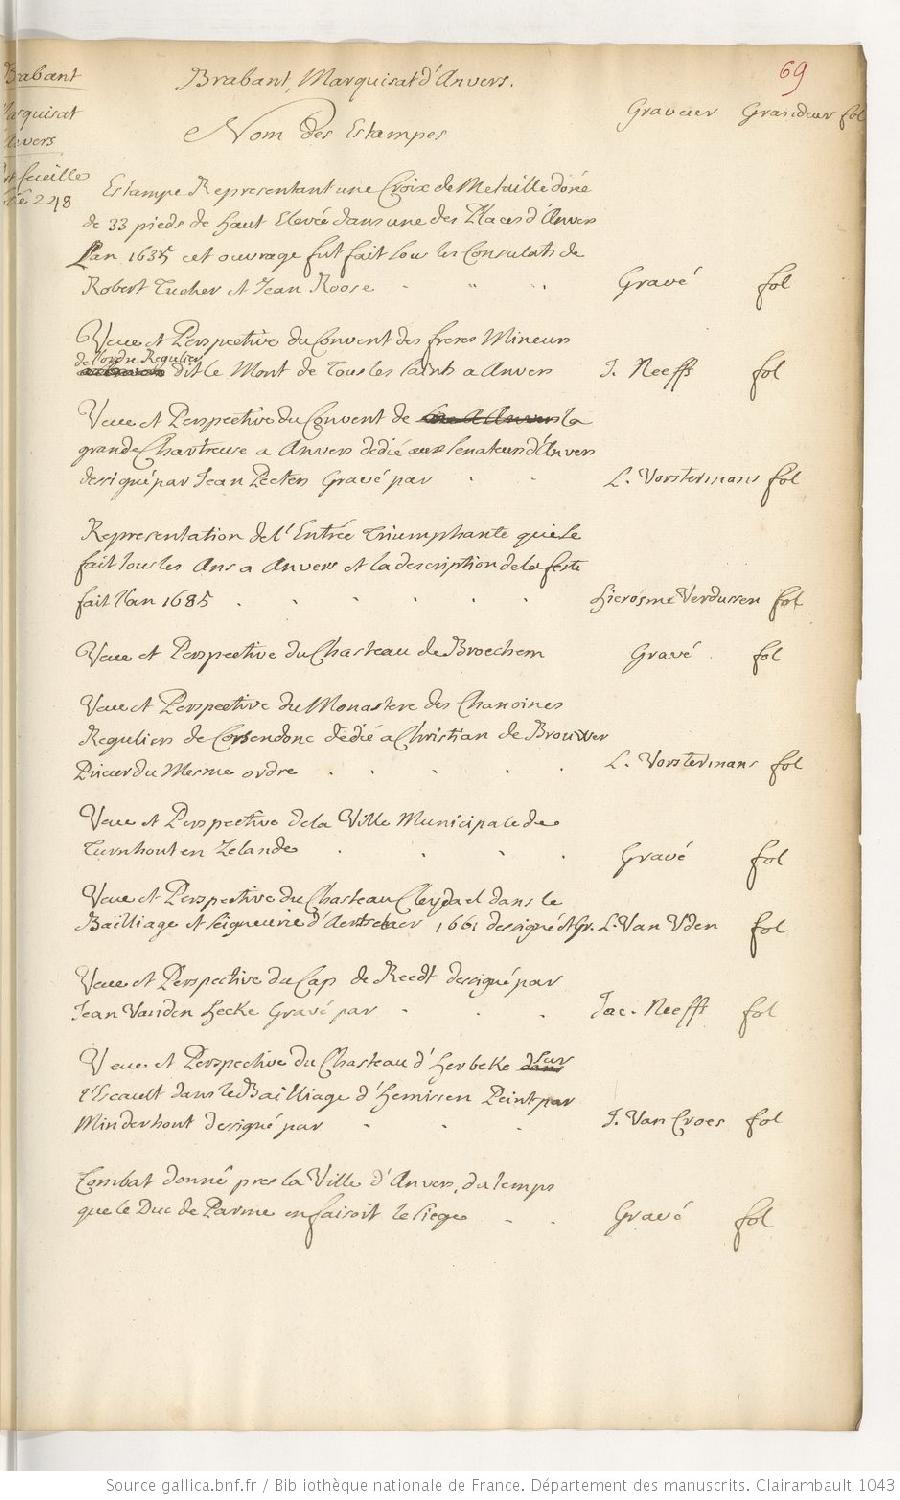 69
Brabant, Marquisat d'Anvers.
Brabant
Marquisat
Anvers
feuille
248
Nom des Estampes
Graveur Grandeur fol
Estampe Representant une Croix de Metaille doré
de 33 pieds de haut Elevée dans une des Places d'Anvers
L'an 1635 cet ouvrage fut fait sous les Consulats de
Robert Tucher et Jean Roose Gravé fol
Veue et Perspective du Convent des freres Mineurs
de l'ordre Regulier dit le Mont de Tous les saints a Anvers J. Neeffs fol
Veue et Perspective du Convent de la
grande Chartreuse a Anvers dedié aux senateurs d'Anvers
dessigné par Jean Peeters Gravé par L. Vorstermans fol
Representation de l'Entrée Triumphante qui se
fait tous les Ans a Anvers et la description de la feste
fait l'an 1685 Hierosme Verdussen fol
Veue et Perspective du Chasteau de Broechem Gravé fol
Veue et Perspective du Monastere des Chanoines
Reguliers de Corsendonc dedié a Christian de Brouwer
Prieur du Mesme ordre L. Vorstermans fol
Veue et Perspective de la Ville Municipale de
Turnhout en Zelande Gravé fol
Veue et Perspective du Chasteau Cleydael dans le
Bailliage et seigneurie d'Aertselaer 1661 dessigné et Gr. L. Van Vden fol
Veue et Perspective du Cap de Reedt dessigné par
Jean Vanden Hecke Gravé par Jac. Neefft fol
Veue et Perspective du Chasteau d'Herbeke sur
l'Escault dans le Bailliage d'Hemissen Peint par
Minderhout dessigné par J. Van Croes fol
Combat donné pres la Ville d'Anvers, du temps
que le Duc de Parme en faisoit le siege Gravé fol
Source gallica.bnf.fr / Bibliothèque nationale de France. Département des manuscrits. Clairambault 1043